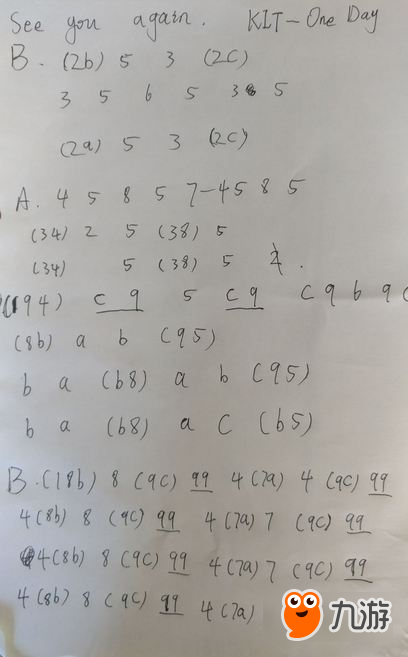 See you again. KIT-One Day
B. (2b) 5 3 (2C)
3 5 6 5 3 5
(2a) 5 3 (2C)
A. 4 5 8 5 7-45 8 5
(34) 2 5 (38) 5
(34) 5 (38) 5 .
(194) c 9 5 c 9 c 9 b 9 c
(8b) a b (95)
b a (b8) a b (95)
b a (b8) a C (b5)
B. (18b) 8 (9C) 99 4 (7a) 4 (9C) 99
4 (8b) 8 (9C) 99 4 (7a) 7 (9C) 99
4 (8b) 8 (9C) 99 4 (7a) 7 (9C) 99
4 (8b) 8 (9C) 99 4 (7a)
九游